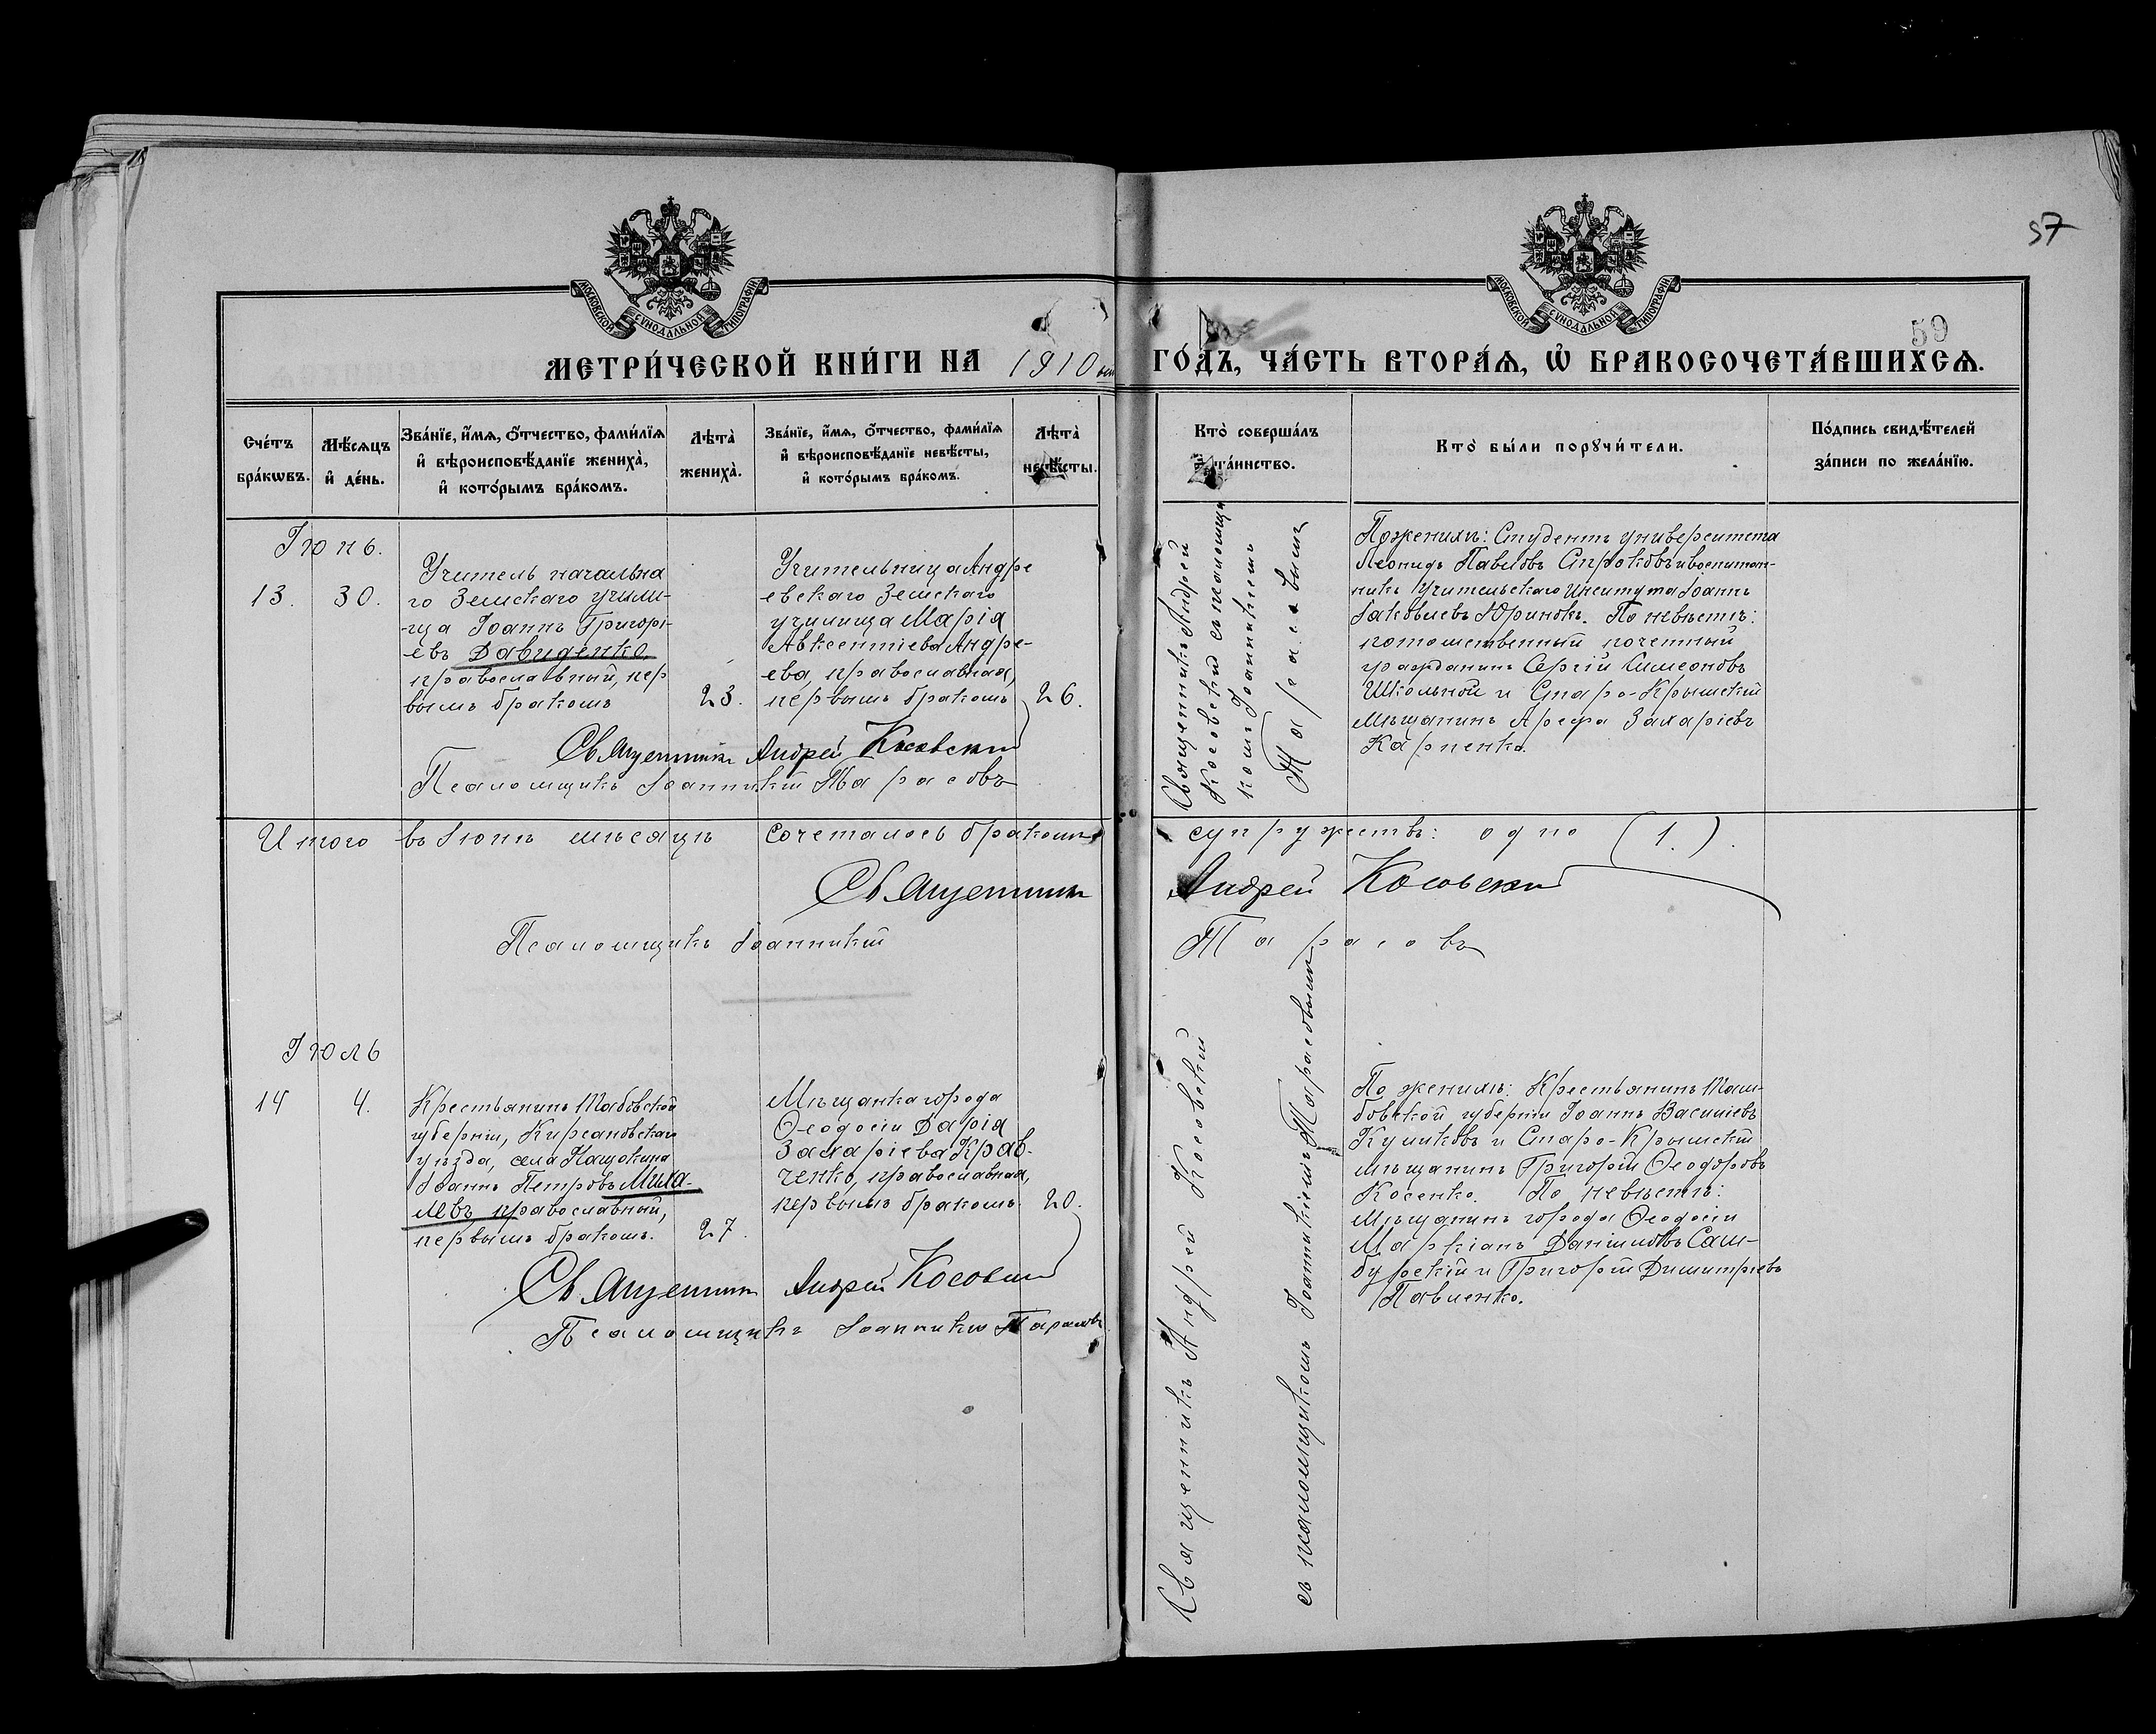 57
59
МОСКОВСКОЙ СѴНОДАЛЬНОЙ ТИПОГРАФІИ
МОСКОВСКОЙ СѴНОДАЛЬНОЙ ТИПОГРАФІИ
МЕТРИ́ЧЕСКОЙ КНИ́ГИ НА 1910 ГО́ДЪ, ЧА́СТЬ ВТОРА́Ѧ, Ѽ БРАКОСОЧЕТА́ВШИХСѦ.
Сче́тъ бра́кѡвъ.
Мѣ́сѧцъ и҆ де́нь.
Зва́нїе, и҆́мѧ, ѻ҆́тчество, фами́лїѧ
и҆ вѣроисповѣ́данїе жениха̀,
и҆ кото́рымъ бра́комъ.
Лѣ́та̀ жениха̀.
Зва́нїе, и҆́мѧ, ѻ҆́тчество, фами́лїѧ
и҆ вѣроисповѣ́данїе невѣ́сты,
и҆ кото́рымъ бра́комъ.
Лѣ́та̀ невѣ́сты.
Кто̀ соверша́лъ
та́инство.
Кто̀ бы́ли порꙋчи́тели.
По́дпись свидѣ́телей
за́писи по жела́нїю.
Іюнь.
13. 30.
Учитель начальна
го Земскаго учили-
-ща Іоаннъ Григорі-
евъ Давиденко,
православный, пер
вымъ бракомъ
23.
Учительница Андре
евскаго Земскаго
училища Марія
Авксентіева Андре-
ева, православная,
первымъ бракомъ
26.
Священникъ Андрей
Косовскій съ псаломщи
комъ Іоанникіемъ
Тарасовымъ
По женихѣ: Студентъ университета
Леонидъ Павловъ Строковъ и воспитан-
никъ Учительскаго Института Іоаннъ
Іаковлевъ Юринокъ. По невѣстѣ:
потомственный почетный
гражданинъ Сергій Симеоновъ
Школьной и Старо-Крымскій
мѣщанинъ Арефа Захаріевъ
Карпенко.
Священникъ Андрей Косовскій
Псаломщикъ Іоанникій Тарасовъ
Итого въ Іюнѣ мѣсяцѣ сочеталось бракомъ супружествъ: одно (1.).
Священникъ Андрей Косовскій
Псаломщикъ Іоанникій Тарасовъ
Іюль
14 4.
Крестьянинъ Тамбовской
губерніи, Кирсановскаго
уѣзда, села Нащокина
Іоаннъ Петровъ Миха-
левъ, православный,
первымъ бракомъ.
27.
Мѣщанка города
Ѳеодосіи Дарія
Захаріева Крав-
ченко, православная,
первымъ бракомъ.
20.
Священникъ Андрей Косовскій
съ псаломщикомъ Іоанникіемъ Тарасовымъ
По женихѣ: Крестьянинъ Там-
бовской губерніи Іоаннъ Василіевъ
Куликовъ и Старо-Крымскій
мѣщанинъ Григорій Ѳеодоровъ
Косенко. По невѣстѣ:
Мѣщанинъ города Ѳеодосіи
Маркіанъ Даніиловъ Сам-
бурскій и Григорій Димитріевъ
Павленко.
Священникъ Андрей Косовскій
Псаломщикъ Іоанникій Тарасовъ